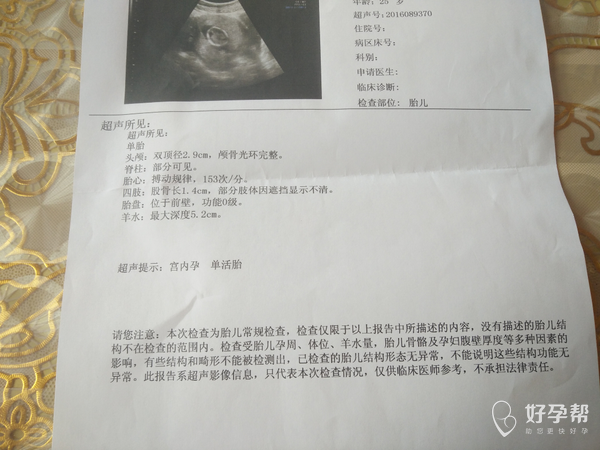 年龄: 25 岁
超声号: 2016089370
住院号:
病区床号:
科别:
申请医生:
临床诊断:
检查部位: 胎儿
超声所见:
超声所见:
单胎
头颅: 双顶径2.9cm, 颅骨光环完整。
脊柱: 部分可见。
胎心: 搏动规律, 153次/分。
四肢: 股骨长1.4cm, 部分肢体因遮挡显示不清。
胎盘: 位于前壁, 功能0级。
羊水: 最大深度5.2cm。
超声提示: 宫内孕 单活胎
请您注意: 本次检查为胎儿常规检查, 检查仅限于以上报告中所描述的内容, 没有描述的胎儿结
构不在检查的范围内。检查受胎儿孕周、体位、羊水量, 胎儿骨骼及孕妇腹壁厚度等多种因素的
影响, 有些结构和畸形不能被检测出, 已检查的胎儿结构形态无异常, 不能说明这些结构功能无
异常。此报告系超声影像信息, 只代表本次检查情况, 仅供临床医师参考, 不承担法律责任。
好孕帮
助您更快好孕